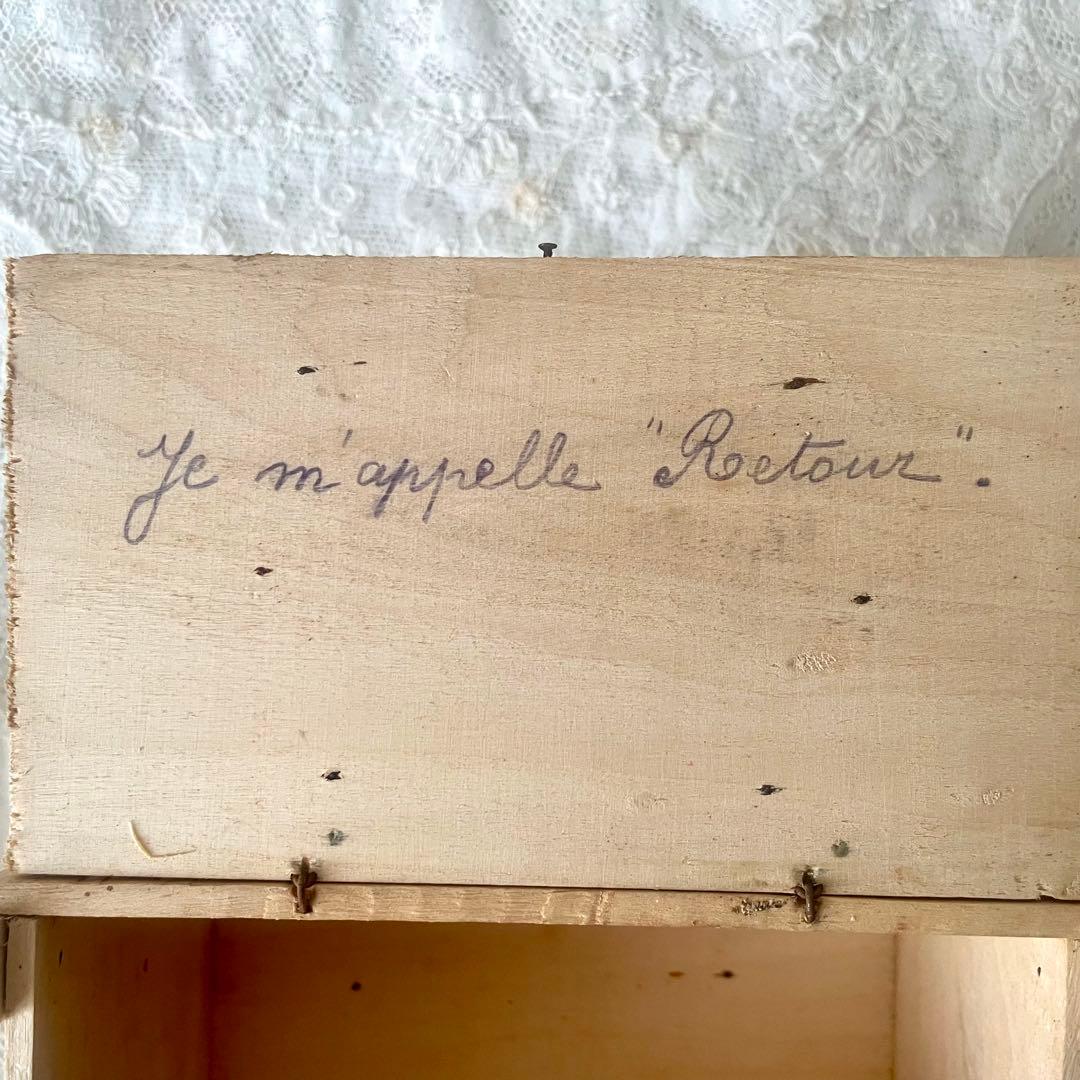 Je m'appelle "Retour".